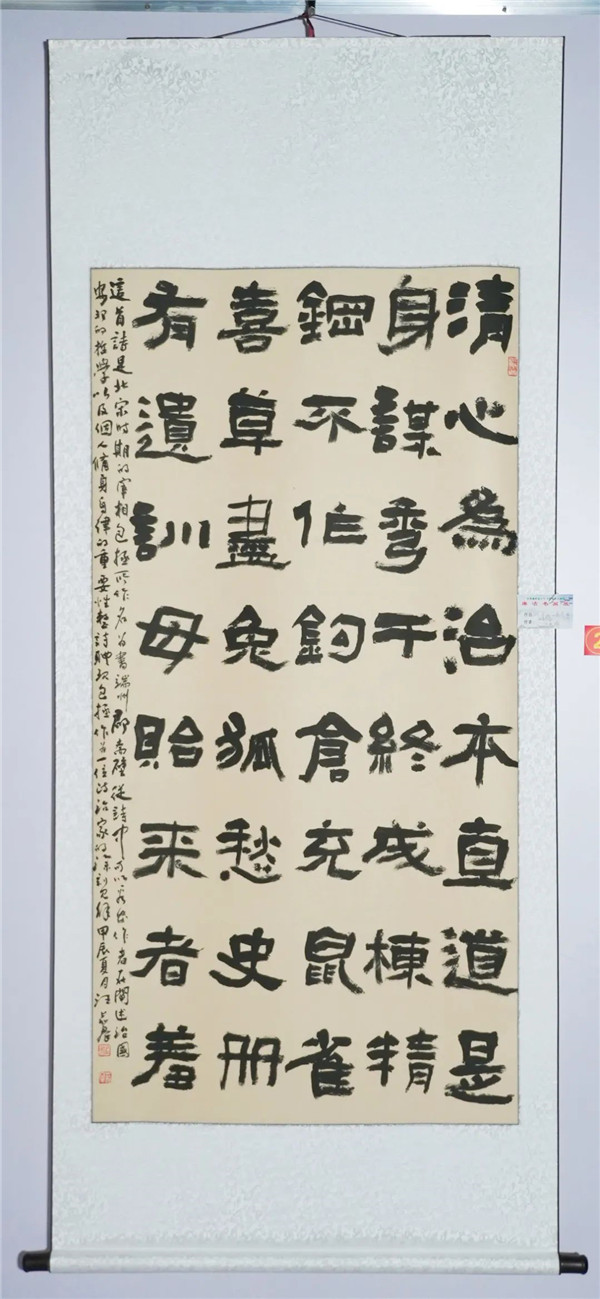 清心為治本直道是
身謀秀干終成棟精
鋼不作鈎倉充鼠雀
喜草盡兔狐愁史册
有遺訓毋貽来者羞
這首詩是北宋时期的宰相包拯所作名为書端州郡斋壁從詩中可以看出作者在闡述治國
安邦的哲學以及個人脩身自律的重要性整詩体现包拯作为一位政治家的深刻见解甲辰夏月汪
2